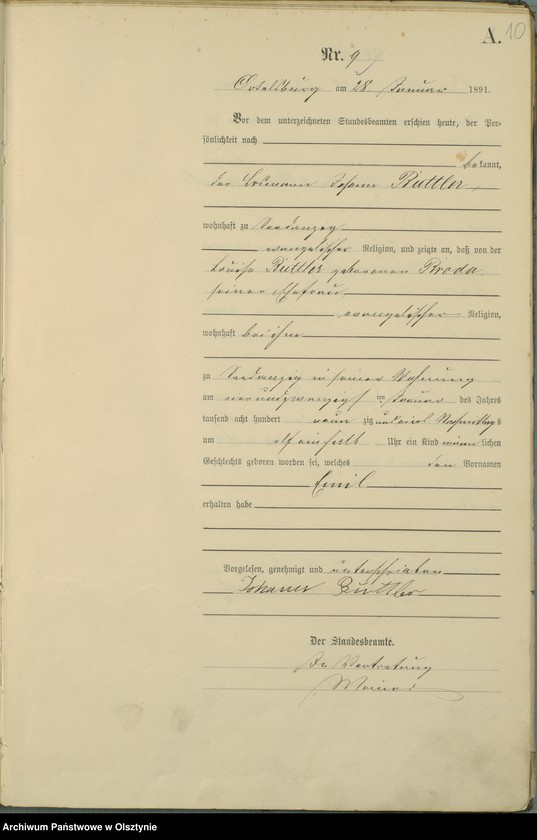 A. 10
Nr. 9
Ortelsburg am 28 Januar 1891.
Vor dem unterzeichneten Standesbeamten erschien heute, der Per-
sönlichkeit nach
bekannt,
der Johann Büttler
wohnhaft zu Seedanzig
evangelischer Religion, und zeigte an, daß von der
Louise Büttler geborenen Broda,
seiner Ehefrau
evangelischer Religion,
wohnhaft bei ihm
zu Seedanzig in seiner Wohnung
am vierundzwanzigsten Januar des Jahres
tausend acht hundert neunzig und eins Nachmittags
um elfeinhalb Uhr ein Kind männlichen
Geschlechts geboren worden sei, welches den Vornamen
Emil
erhalten habe
Vorgelesen, genehmigt und unterschrieben
Johann Büttler
Der Standesbeamte.
In Vertretung
Archiwum Państwowe w Olsztynie